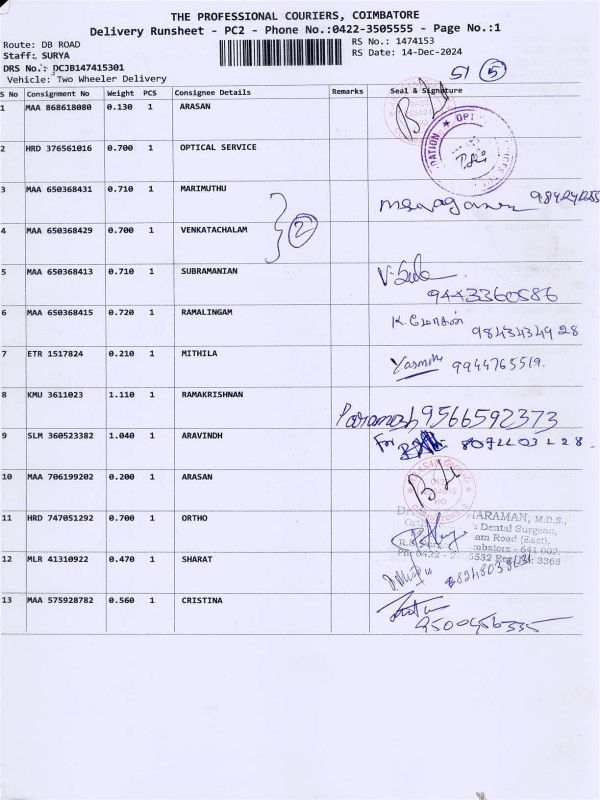 THE PROFESSIONAL COURIERS, COIMBATORE
Delivery Runsheet - PC2 - Phone No.:0422-3505555 - Page No.:1
Route: DB ROAD
RS No.: 1474153
Staff: SURYA
RS Date: 14-Dec-2024
DRS No.: DCJB147415301
Vehicle: Two Wheeler Delivery
51 5
S No Consignment No Weight PCS Consignee Details Remarks Seal & Signature
1 MAA 868618080 0.130 1 ARASAN
2 HRD 376561016 0.700 1 OPTICAL SERVICE
3 MAA 650368431 0.710 1 MARIMUTHU
4 MAA 650368429 0.700 1 VENKATACHALAM
2
5 MAA 650368413 0.710 1 SUBRAMANIAN
9443360586
6 MAA 650368415 0.720 1 RAMALINGAM
K.
9843434928
7 ETR 1517824 0.210 1 MITHILA Yasmin 9944765519.
8 KMU 3611023 1.110 1 RAMAKRISHNAN
9566592373
9 SLM 360523382 1.040 1 ARAVINDH For
10 MAA 706199202 0.200 1 ARASAN
11 HRD 747051292 0.700 1 ORTHO
ARAMAN, M.D.S.,
Dental Surgeon,
am Road (East),
mbatore - 641 002.
3368
12 MLR 41310922 0.470 1 SHARAT
13 MAA 575928782 0.560 1 CRISTINA
9500456335